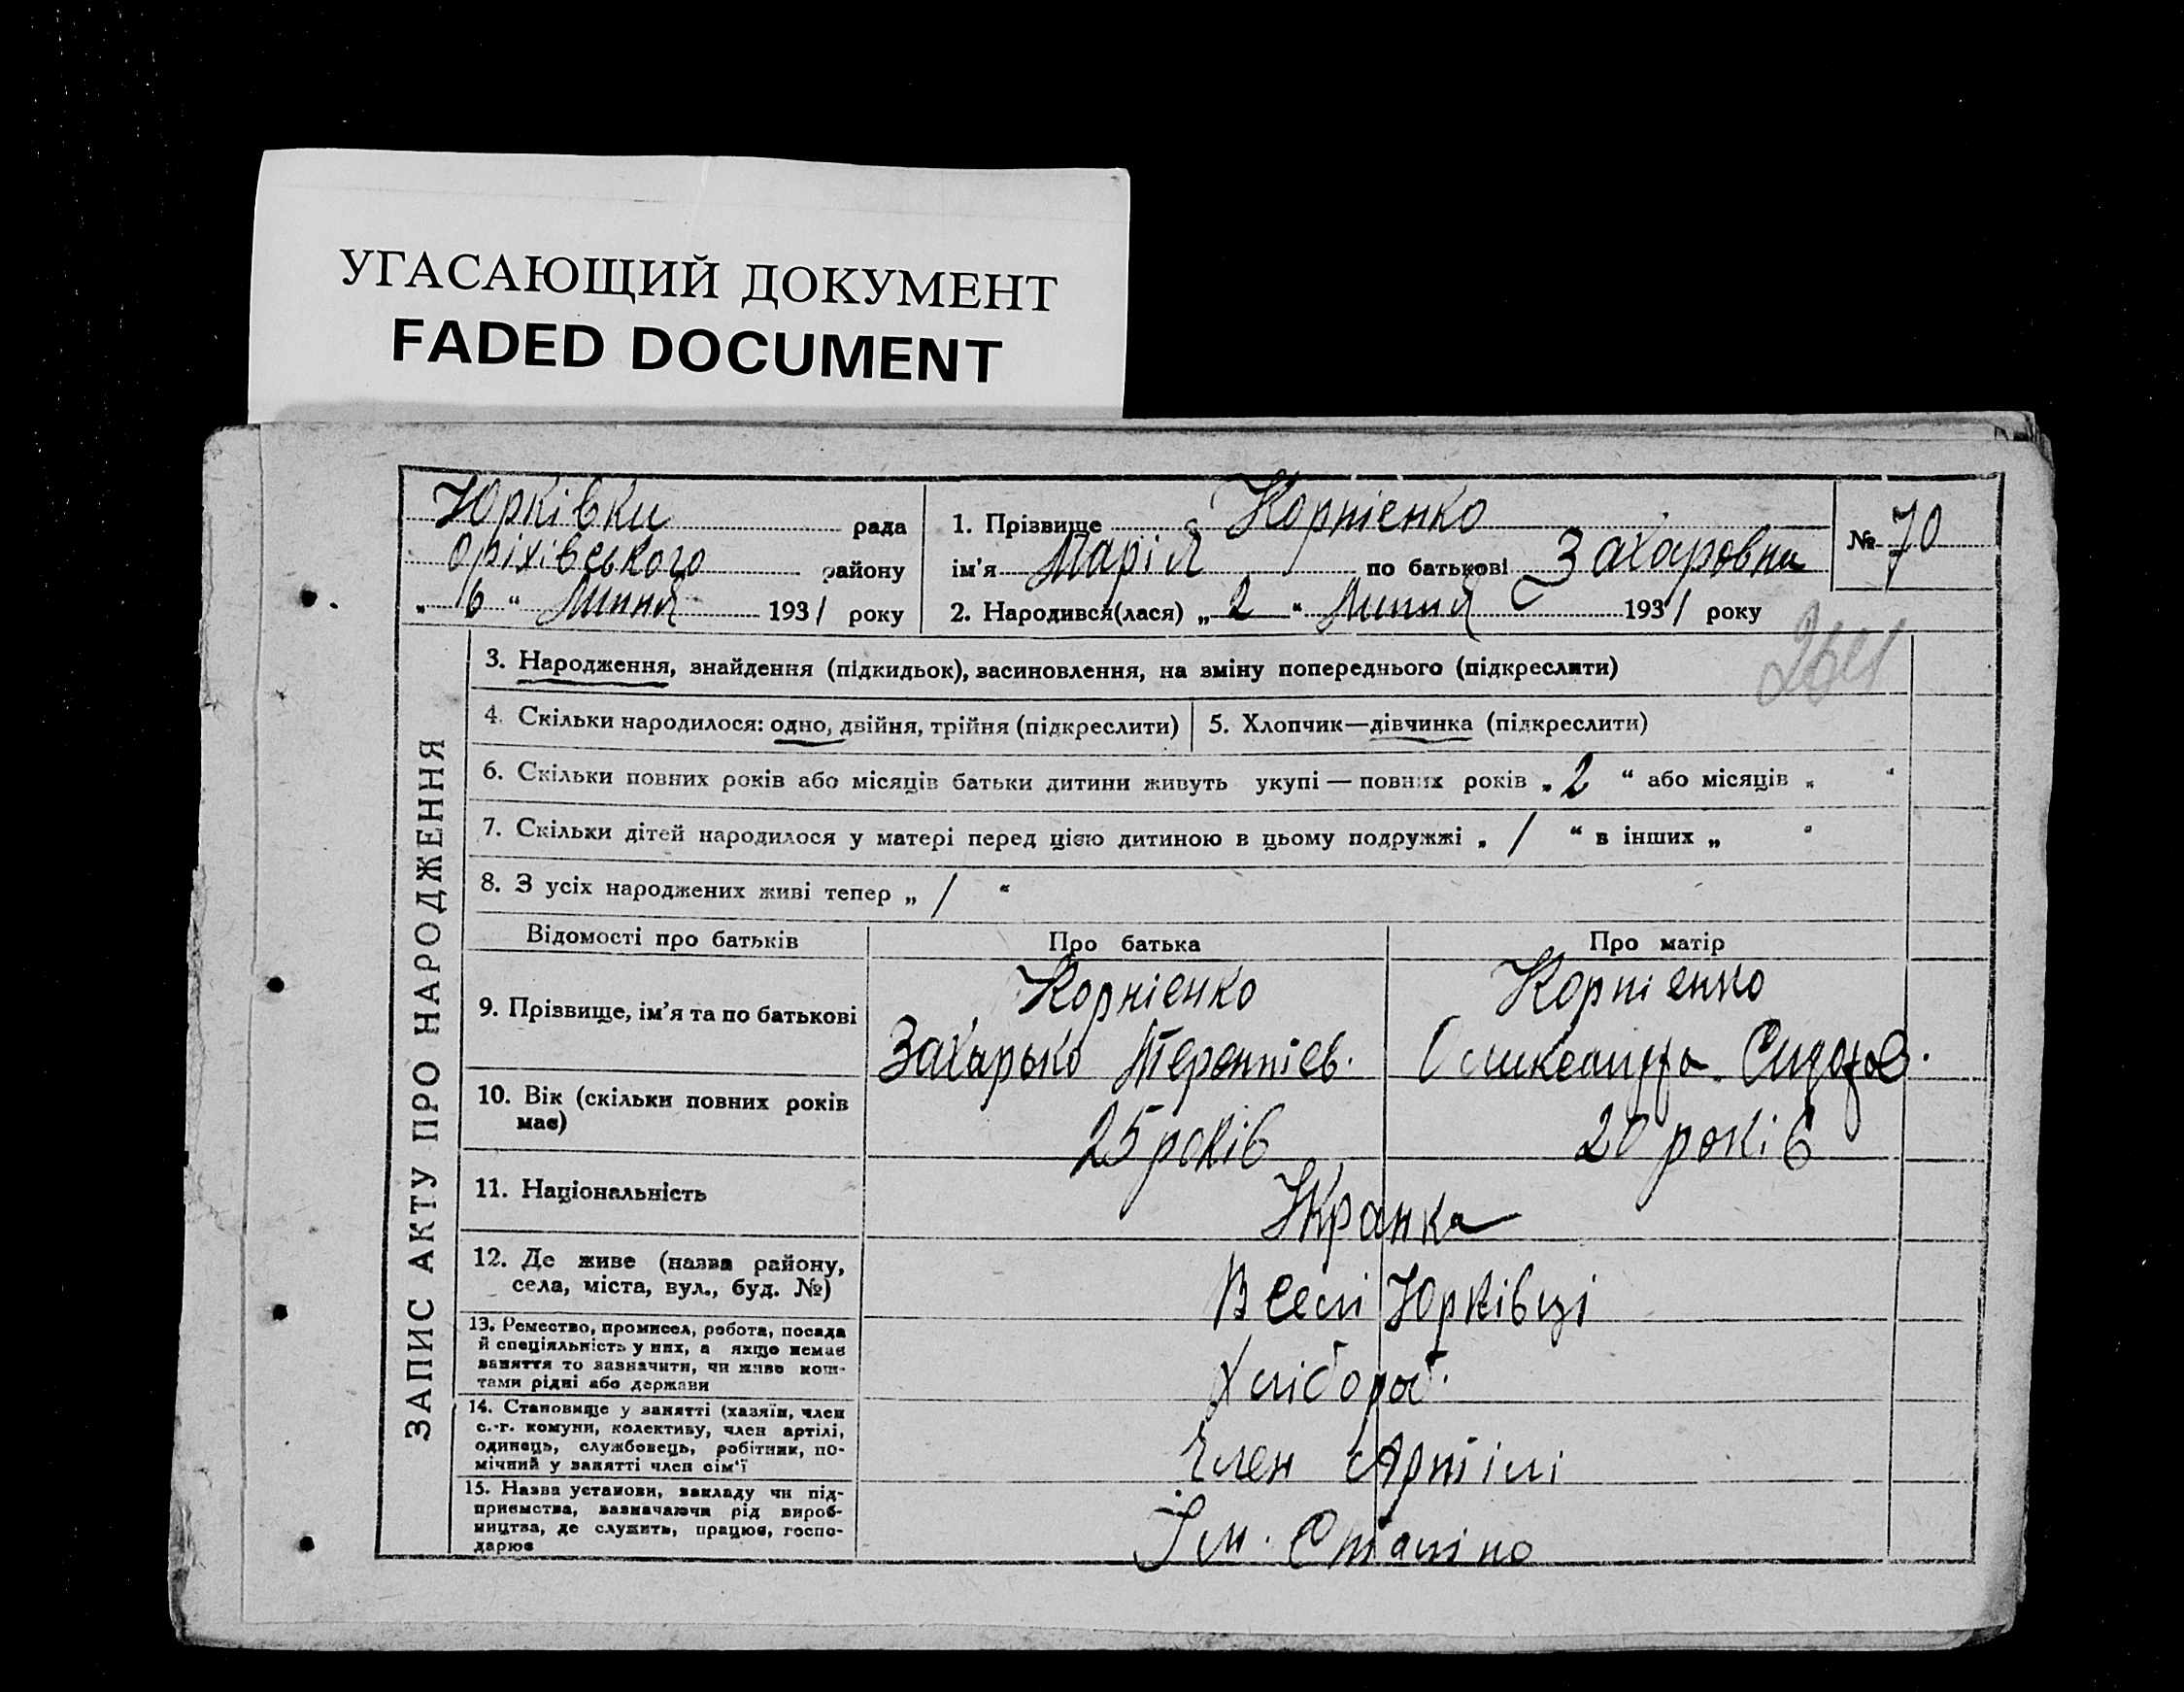 УГАСАЮЩИЙ ДОКУМЕНТ
FADED DOCUMENT
Юрківки рада
Оріхівського району
„ 16 “ Липня 1931 року
1. Прізвище Корнієнко
ім'я Марія по батькові Захаровна
2. Народився(лася) „ 2 “ Липня 1931 року
№ 70
ЗАПИС АКТУ ПРО НАРОДЖЕННЯ
3. Народження, знайдення (підкидьок), засиновлення, на зміну попереднього (підкреслити)
4. Скільки народилося: одно, двійня, трійня (підкреслити)
5. Хлопчик—дівчинка (підкреслити)
6. Скільки повних років або місяців батьки дитини живуть укупі — повних років „ 2 “ або місяців „ “
7. Скільки дітей народилося у матері перед цією дитиною в цьому подружжі „ / “ в інших „ “
8. З усіх народжених живі тепер „ / “
Відомості про батьків Про батька Про матір
9. Прізвище, ім'я та по батькові
Корнієнко
Захарько Терентіев.
Корнієнко
Олександра Сидоров.
10. Вік (скільки повних років
має)
25 років 20 років
11. Національність
Укранка
12. Де живе (назва району,
села, міста, вул., буд. №)
В селі Юрківці
13. Ремество, промисел, робота, посада
й спеціяльність у них, а якщо немає
заняття то зазначити, чи живе кош-
тами рідні або держави
Хлібороб.
14. Становище у занятті (хазяїн, член
с.-г. комуни, колективу, член артілі,
одинець, службовець, робітник, по-
мічний у занятті член сім'ї
Член Артілі
15. Назва установи, закладу чи під-
приємства, зазначаючи рід вироб-
ництва, де служить, працює, госпо-
дарює
Ім. Сталіно